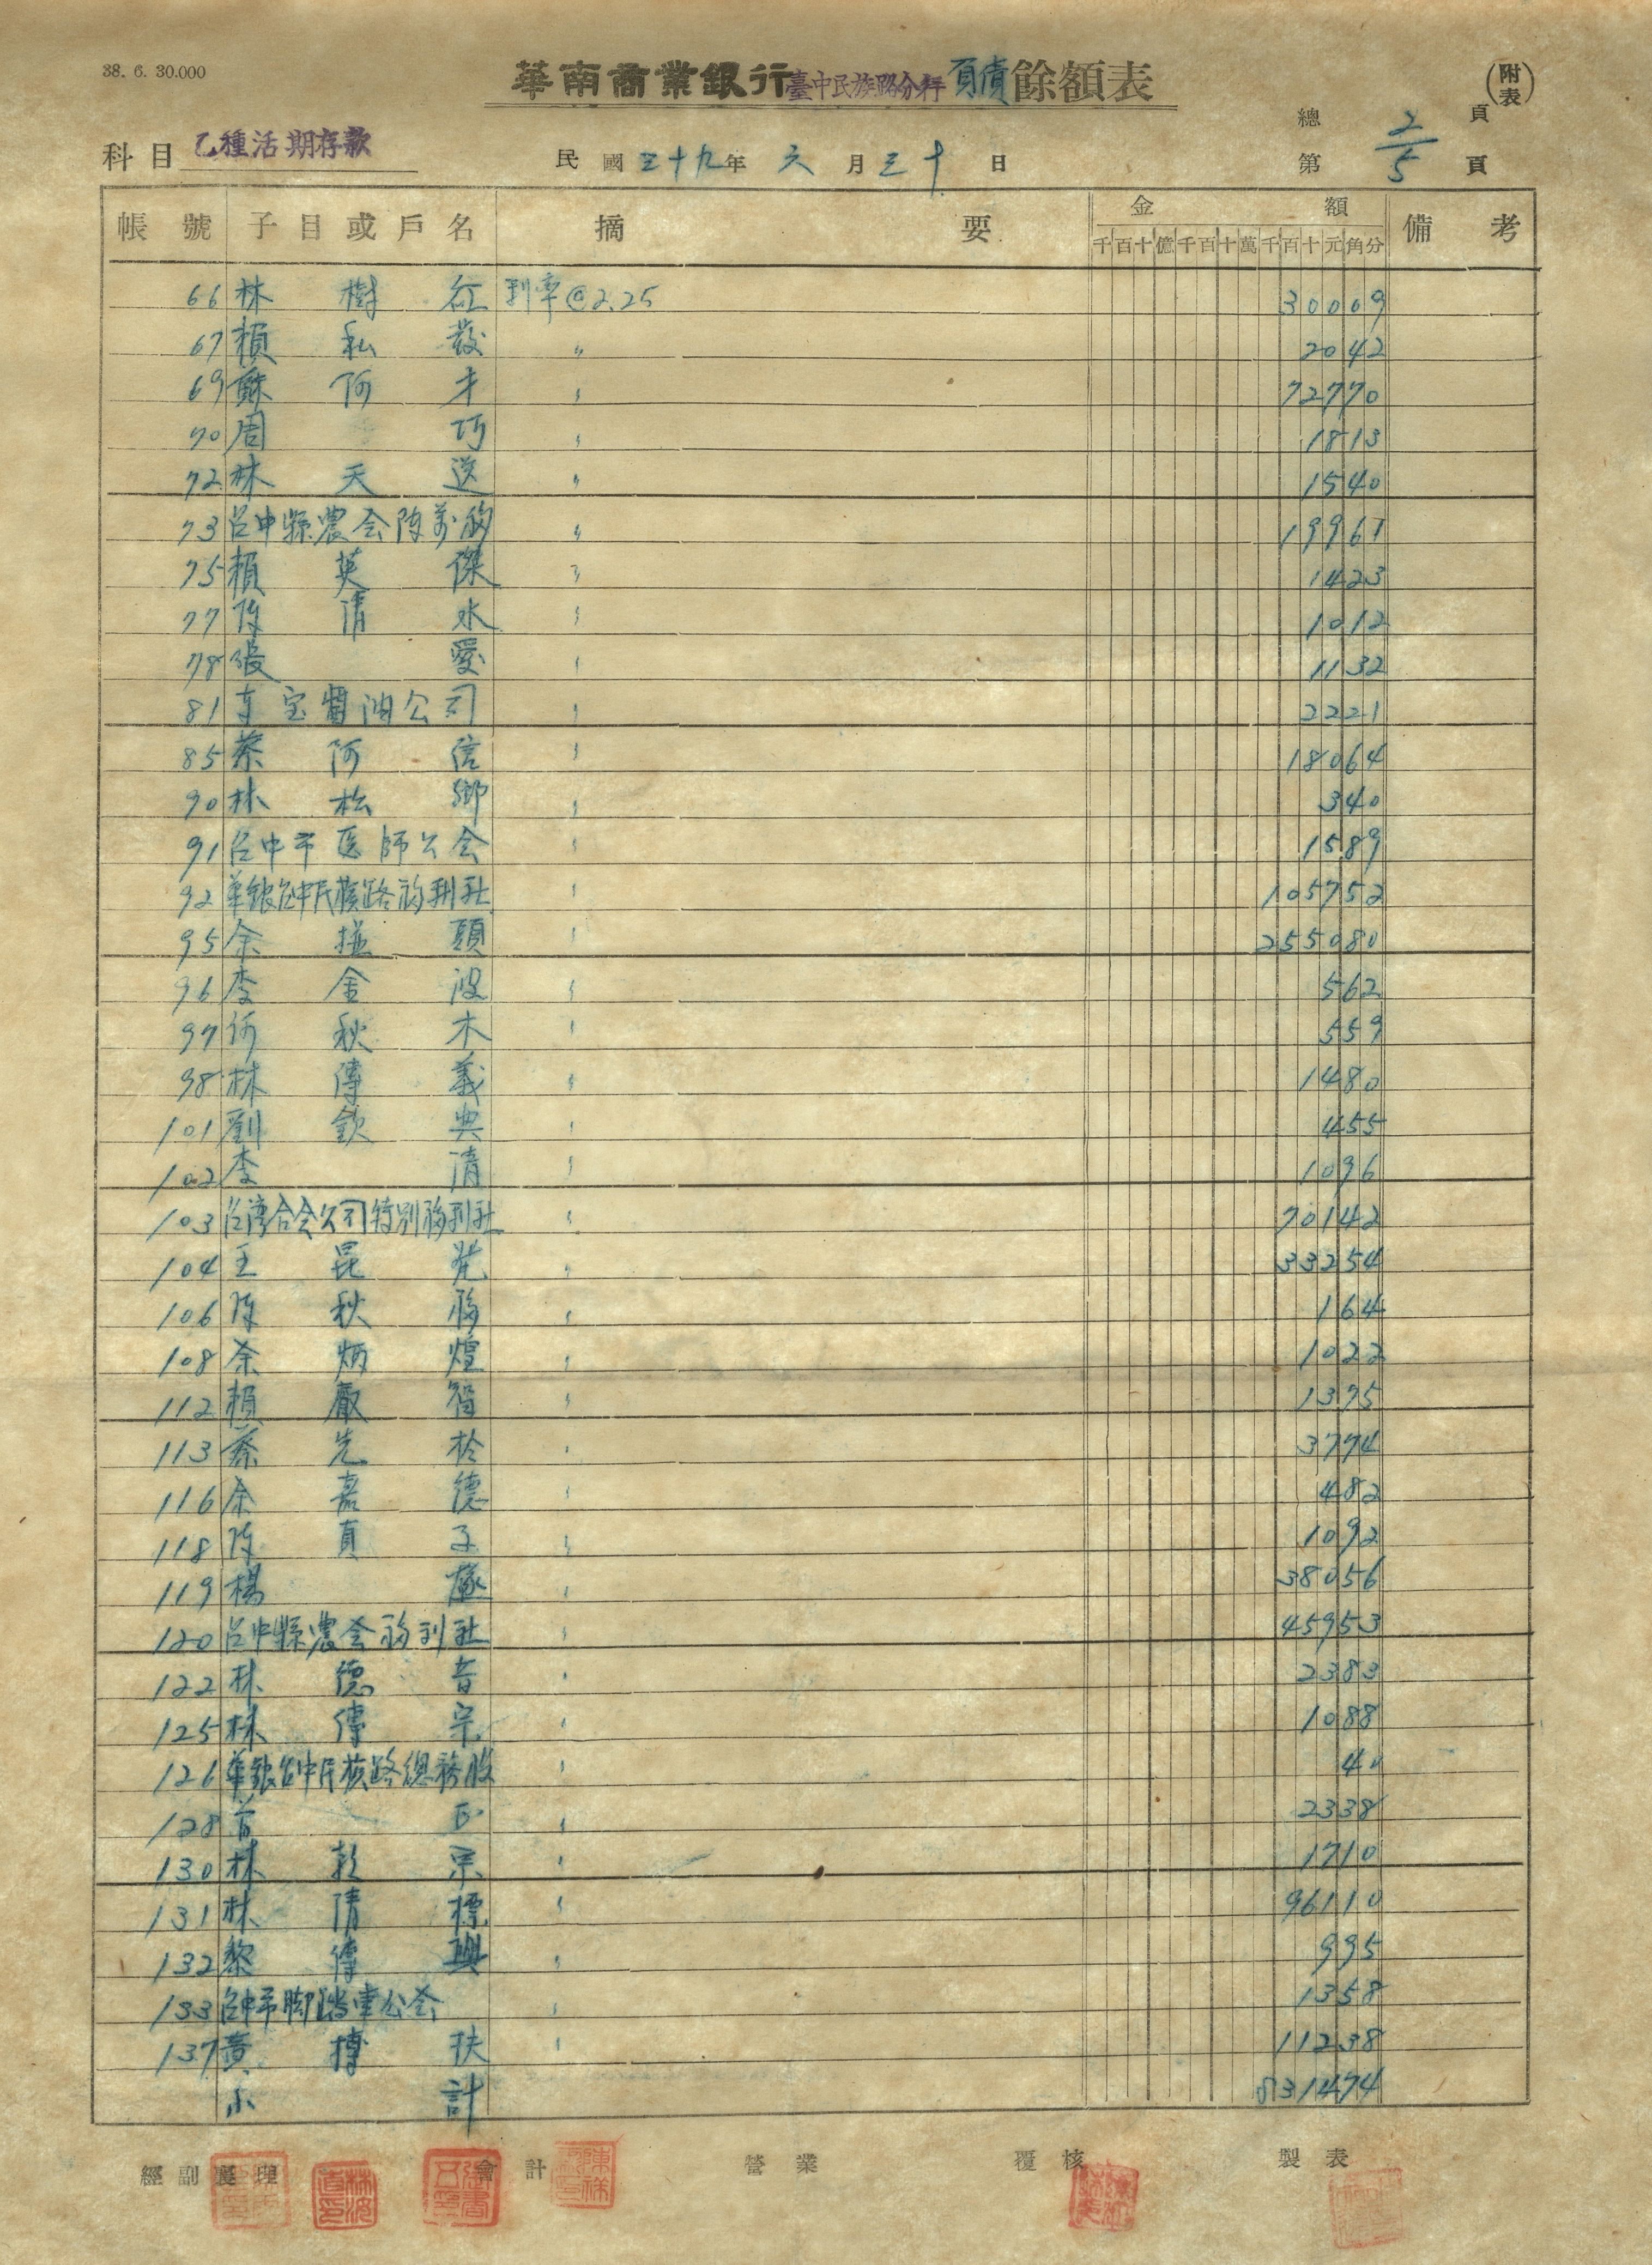 38. 6. 30.000
華南商業銀行臺中民族路分行負債餘額表
(附表)
科目 乙種活期存款
民國三十九年 六月三十日
總 2 頁
第 5 頁
帳號 子目或戶名 摘要 金額 備考
千百十億千百十萬千百十元角分
66 林樹 利率@2.25 30009
67 賴私發 〃 2042
69 蘇阿才 〃 72770
70 周巧 〃 1813
72 林天送 〃 1540
73 台中縣農会陳 〃 19961
75 賴英傑 〃 1423
77 陳清水 〃 1012
78 張愛 〃 1132
81 宝醬油公司 〃 2221
85 蔡阿信 〃 18064
90 林松鄉 〃 340
91 台中市医師公会 〃 1589
92 華銀台中民族路福利社 〃 105752
95 余頭 〃 255080
96 李金波 〃 562
97 何秋木 〃 559
98 林傳義 〃 1480
101 劉欽典 〃 455
102 李清 〃 1096
103 台湾合会公司特別福利社 〃 70142
104 王昆 〃 33254
106 陳秋福 〃 164
108 余炳煌 〃 1022
112 賴嚴智 〃 1375
113 蔡先於 〃 3774
116 余嘉德 〃 482
118 陳真子 〃 1092
119 楊 〃 38056
120 台中縣農会福利社 〃 45953
122 林德音 〃 2383
125 林傳宗 〃 1088
126 華銀台中民族路總務股 〃 40
128 〃 2338
130 林宗 〃 1710
131 林清標 〃 96110
132 黎傳興 〃 995
133 台中市脚踏車公会 〃 1358
137 黃搏扶 〃 11238
小計 831474
經副襄理 會計 營業 覆核 製表